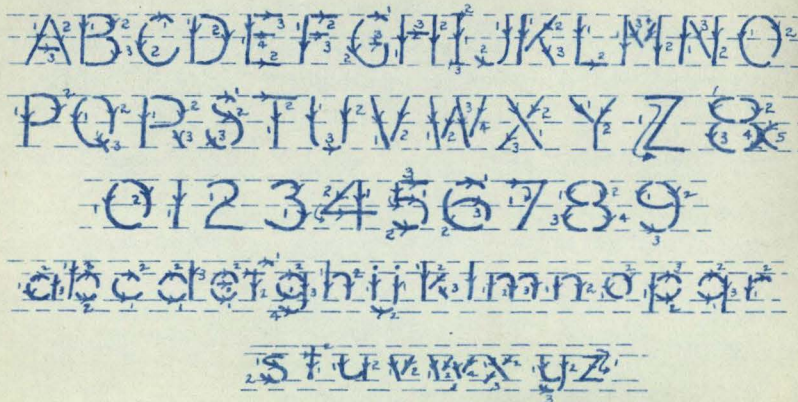 A B C D E F G H I J K L M N O
P Q R S T U V W X Y Z &
0 1 2 3 4 5 6 7 8 9
a b c d e f g h i j k l m n o p q r
s t u v w x y z